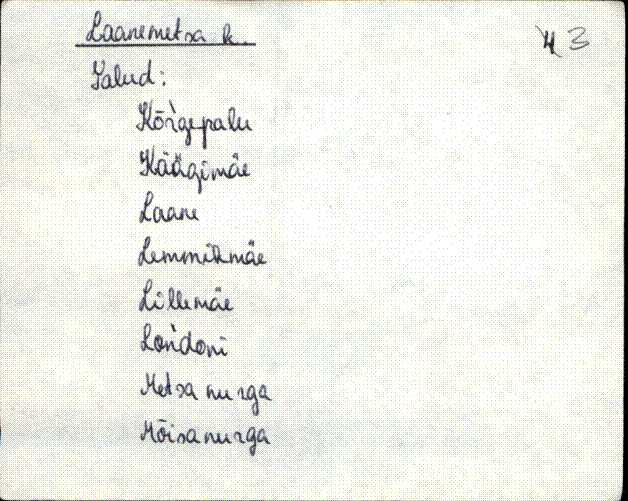 Laanemetsa k. 3
Talud:
Kõr̀gepalu
Käägimäe
Laane
Lemmikmäe
Lillemäe
Loǹdoni
Metsanurga
Mõisanurga